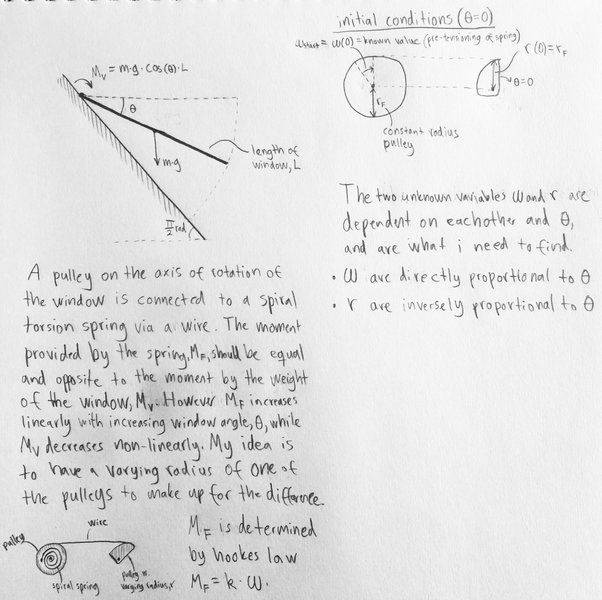 M_v = m·g·cos(θ)·L
θ
length of
window, L
m·g
π/2 rad
A pulley on the axis of rotation of
the window is connected to a spiral
torsion spring via a wire. The moment
provided by the spring, M_F, should be equal
and opposite to the moment by the weight
of the window, M_v. However M_F increases
linearly with increasing window angle, θ, while
M_v decreases non-linearly. My idea is
to have a varying radius of one of
the pulleys to make up for the difference.
pulley
wire
spiral spring
pulley w.
varying radius, r
M_F is determined
by hookes law
M_F = k·ω.
initial conditions (θ=0)
ω_start = ω(0) = known value (pre-tensioning of spring)
r(0) = r_F
θ=0
r_F
constant radius
pulley
The two unknown variables ω and r are
dependent on eachother and θ,
and are what i need to find.
• ω are directly proportional to θ
• r are inversely proportional to θ